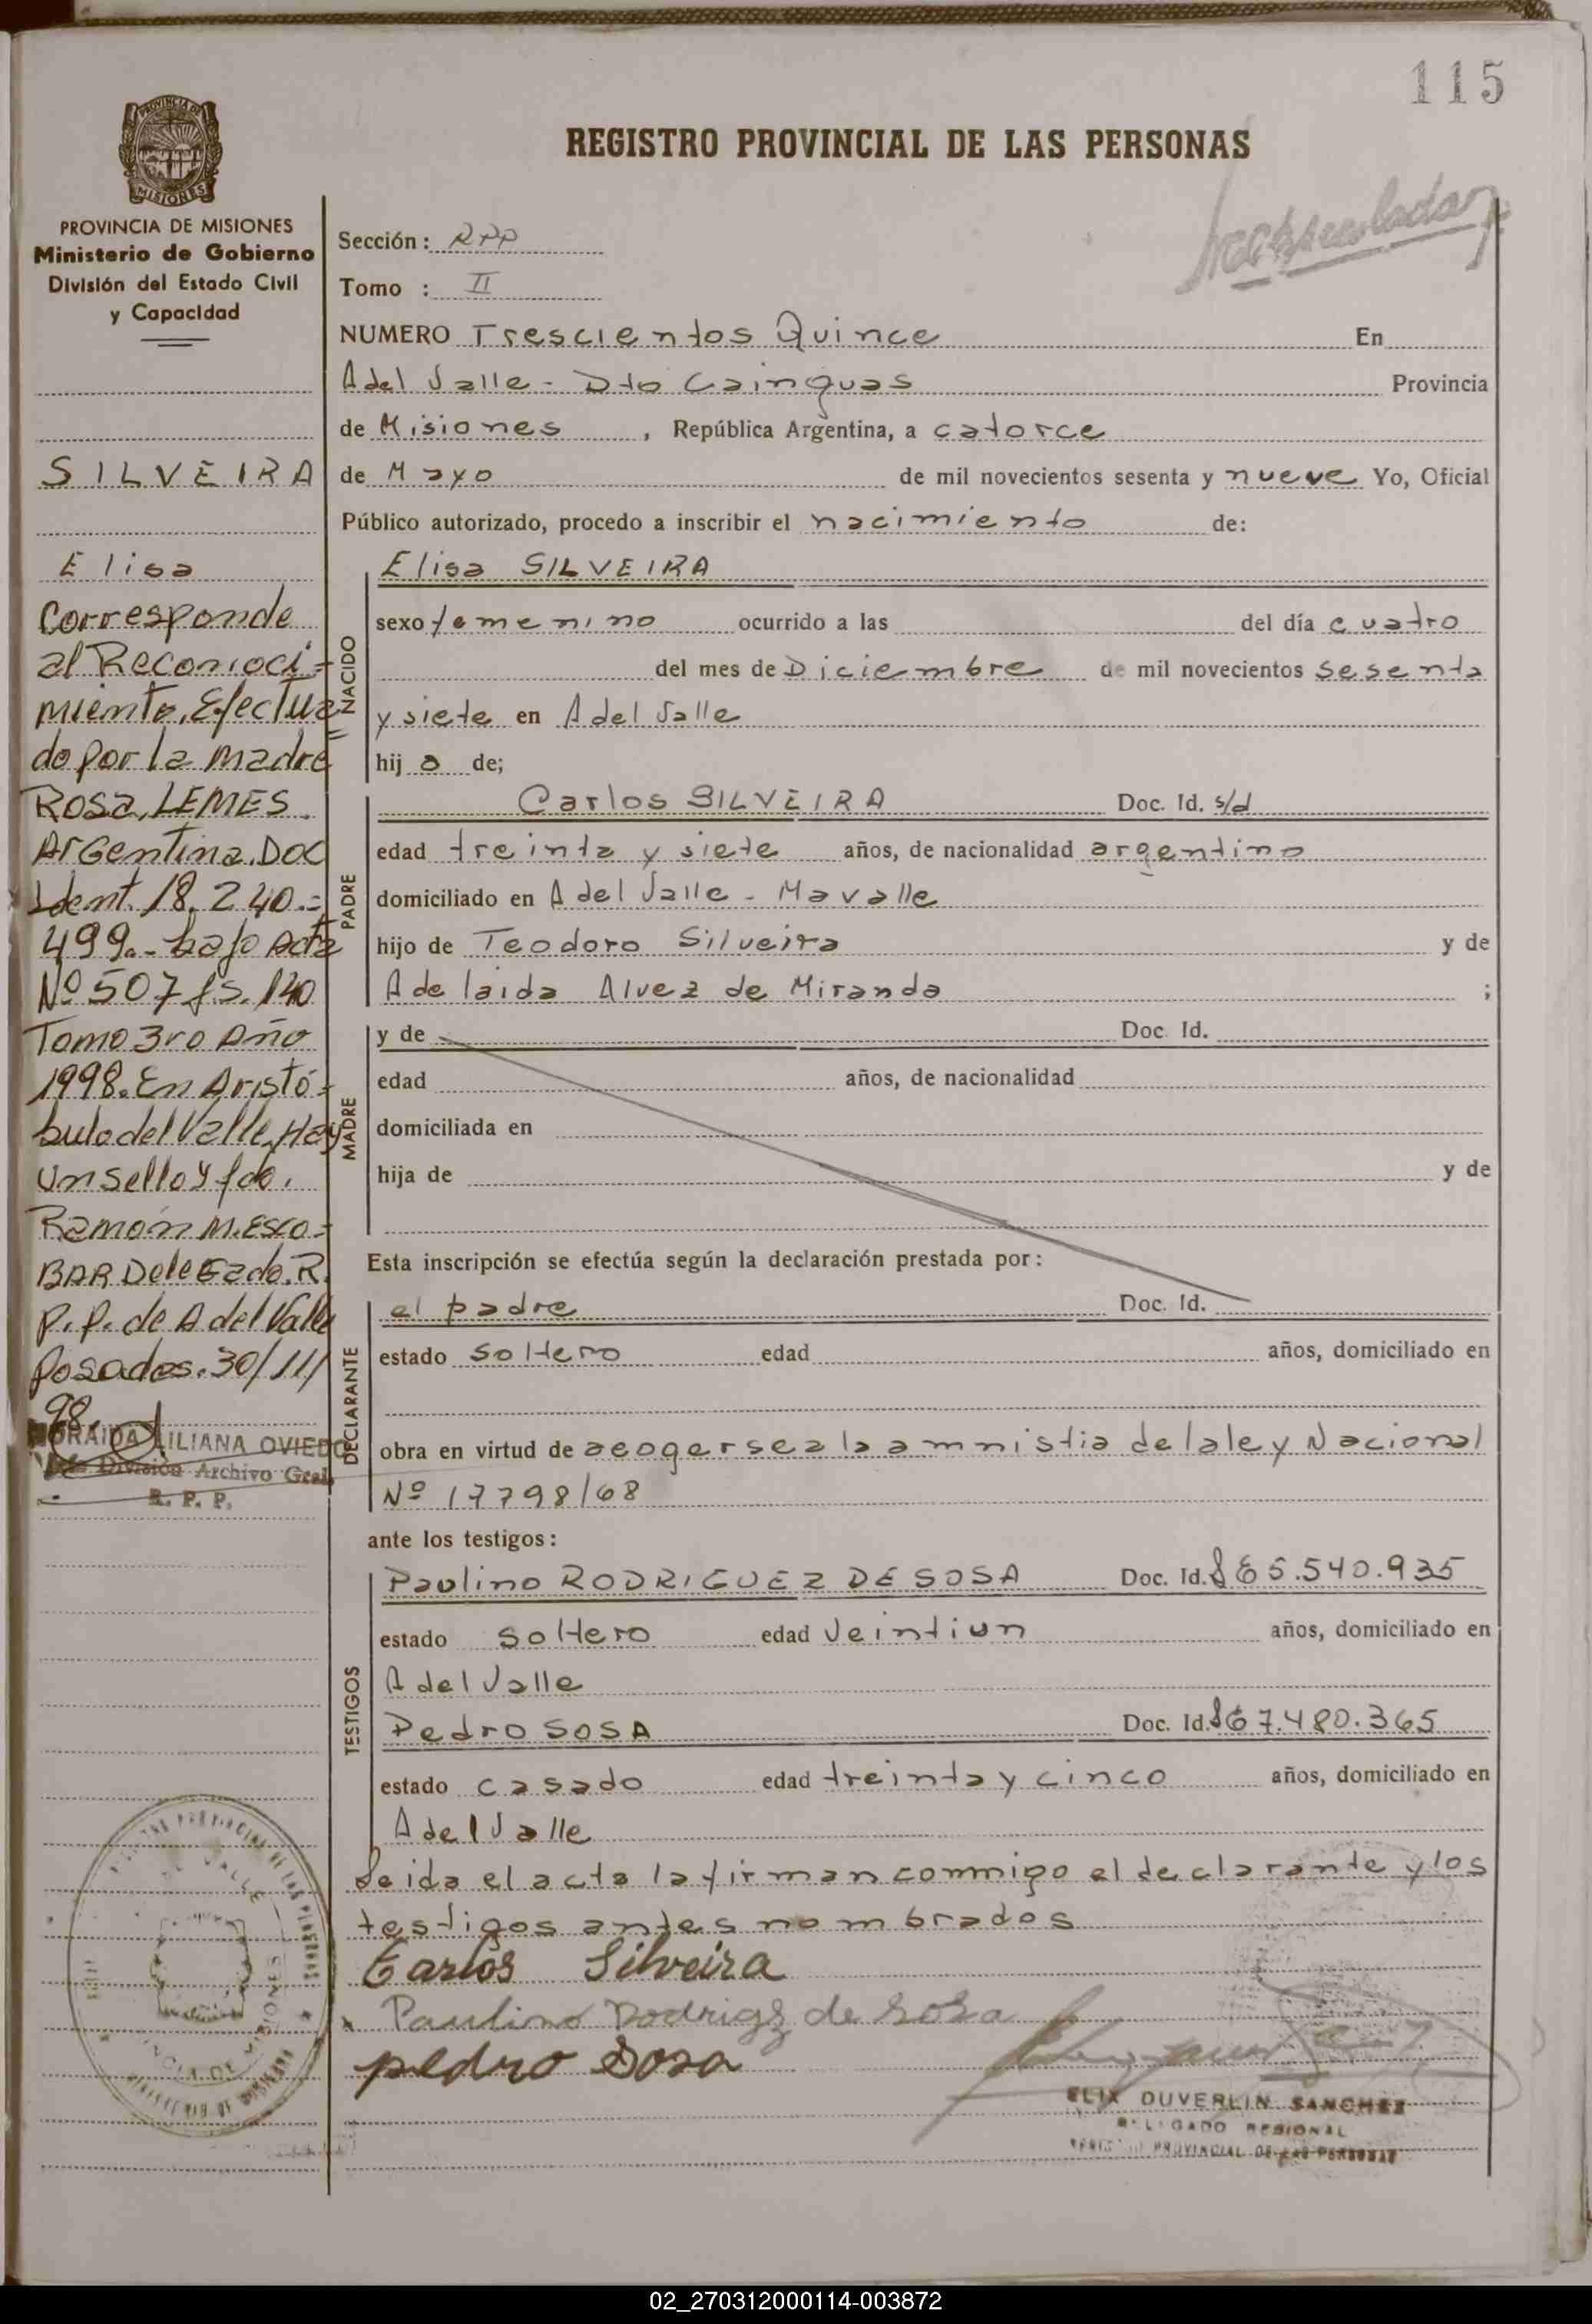 115
REGISTRO PROVINCIAL DE LAS PERSONAS
PROVINCIA DE MISIONES
Ministerio de Gobierno
División del Estado Civil
y Capacidad
SILVEIRA
Elisa
Corresponde
al Reconoci=
miento, Efectua
do por la madre
ROSA, LEMES.
Argentina. Doc
Ident. 18.240.=
499.- bajo Acta
Nº 507 fs. 140
Tomo 3ro Año
1998. En Aristó=
bulo del Valle, Hay
un sello y fdo.
Ramón M. ESCO=
BAR Delegado. R.
P.P. de A del Valle
Posadas. 30/11/
98.
LILIANA OVIEDO
División Archivo Gral.
R. P. P.
Sección: RPP
Tomo : II
NUMERO Trescientos Quince En
A del Valle - Dto Cainguas Provincia
de Misiones , República Argentina, a catorce
de Mayo de mil novecientos sesenta y nueve Yo, Oficial
Público autorizado, procedo a inscribir el nacimiento de:
NACIDO
Elisa SILVEIRA
sexo femenino ocurrido a las del día cuatro
del mes de Diciembre de mil novecientos sesenta
y siete en A del Valle
hij a de;
PADRE
Carlos SILVEIRA Doc. Id. s/d
edad treinta y siete años, de nacionalidad argentino
domiciliado en A del Valle - Mavalle
hijo de Teodoro Silveira y de
Adelaida Alvez de Miranda ;
MADRE
y de Doc. Id.
edad años, de nacionalidad
domiciliada en
hija de y de
Esta inscripción se efectúa según la declaración prestada por:
DECLARANTE
el padre Doc. Id.
estado soltero edad años, domiciliado en
obra en virtud de acogersea la amnistia de la ley Nacional
Nº 17798/68
ante los testigos:
TESTIGOS
Paulino RODRIGUEZ DE SOSA Doc. Id. 65.540.935
estado soltero edad Veintiun años, domiciliado en
A del Valle
Pedro SOSA Doc. Id. 67.480.365
estado casado edad treinta y cinco años, domiciliado en
A del Valle
Leida el acta la firman conmigo el declarante y los
testigos antes nombrados
Carlos Silveira
Paulino Rodrigz de Sosa
pedro Sosa
ELIX DUVERLIN SANCHEZ
REGIONAL
PROVINCIAL DE LAS PERSONAS
02_270312000114-003872